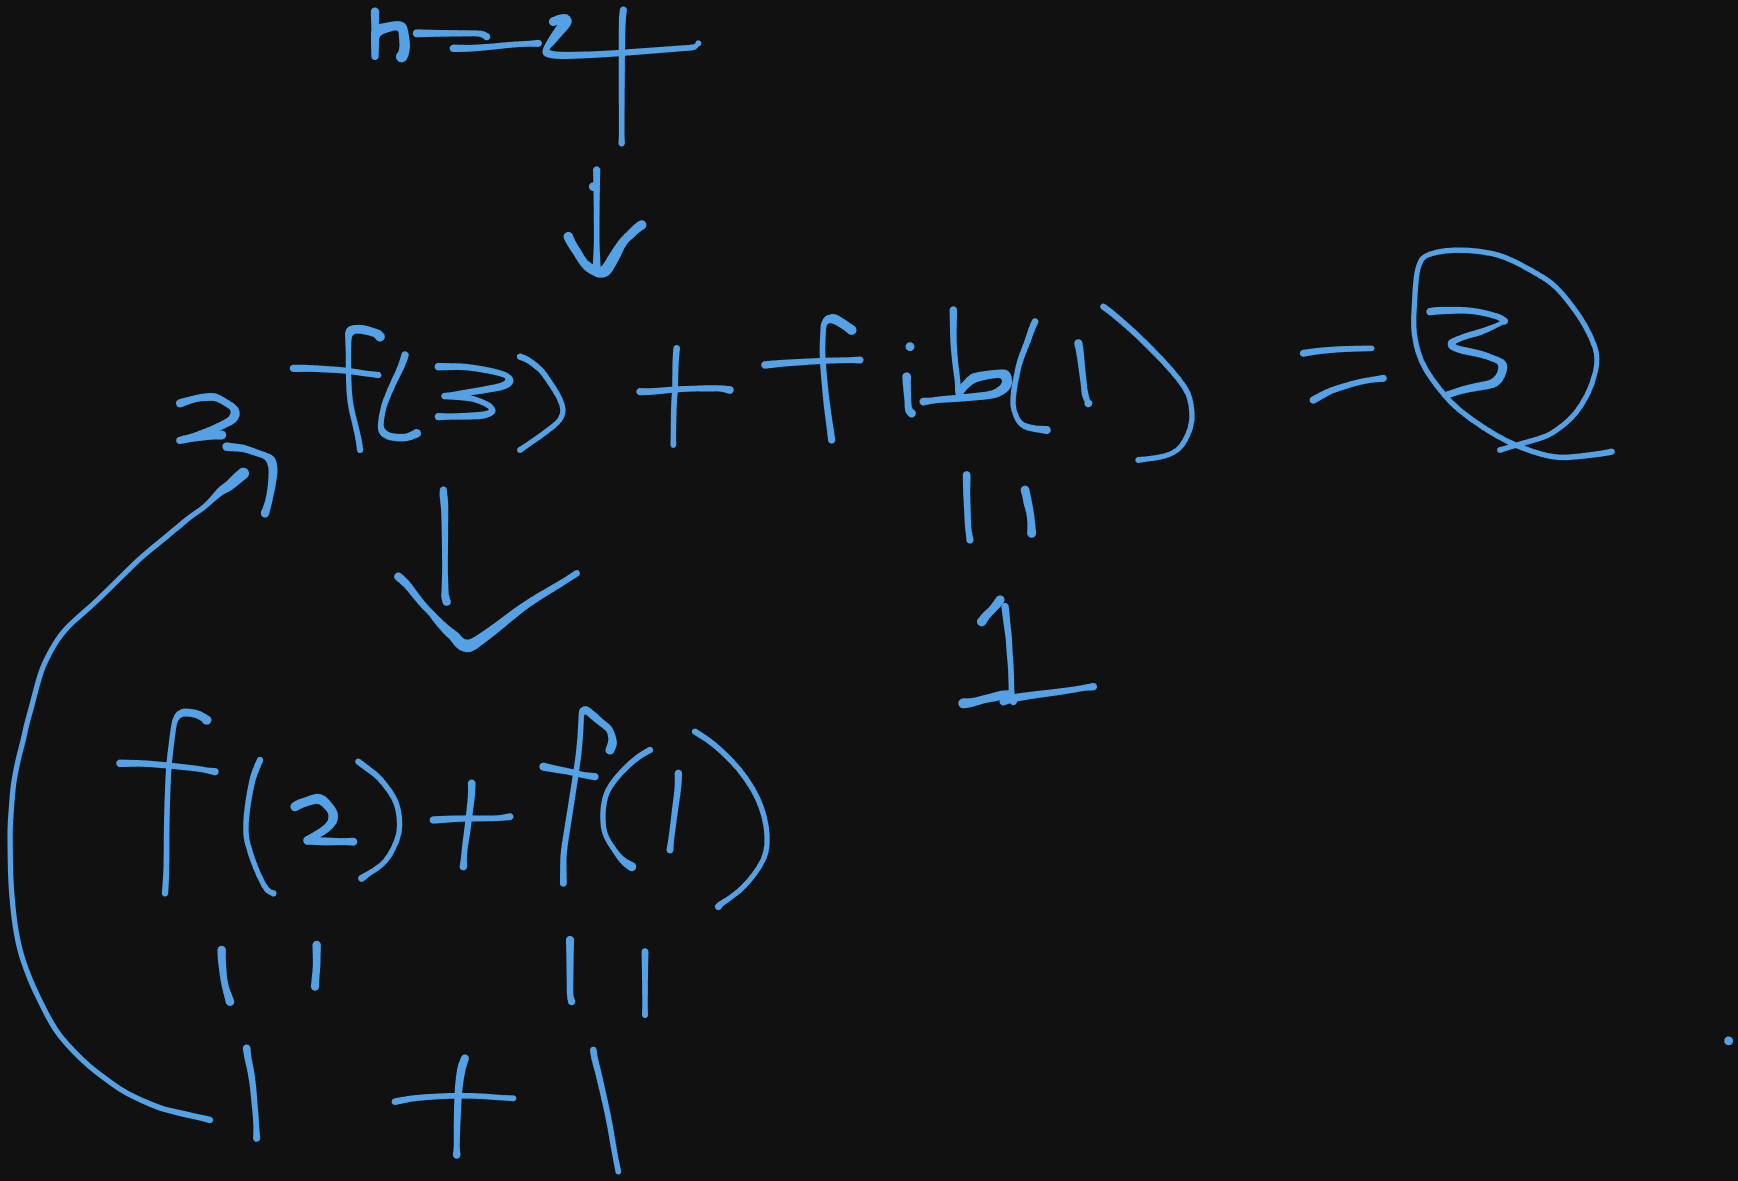 n = 4
f(3) + fib(1) = 3
2,
1
f(2) + f(1)
1 + 1